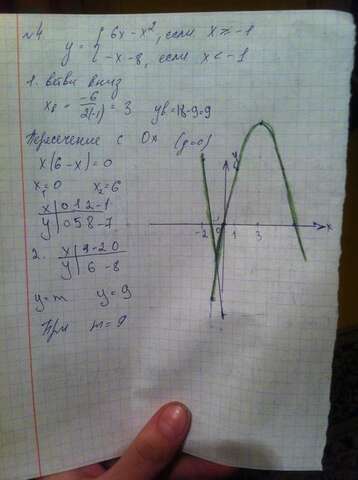 №4.
y = { 6x - x², если x ≥ -1
-x - 8, если x < -1
1. ветви вниз
x₀ = -6 / 2(-1) = 3 yв = 18-9=9
Пересечение с Ox (y=0)
x(6-x)=0
x₁=0 x₂=6
x | 0 1 2 -1
y | 0 5 8 -7
2. x | -2 0
y | 6 -8
y=m y=9
При m=9
y
-2 0 1 3 x